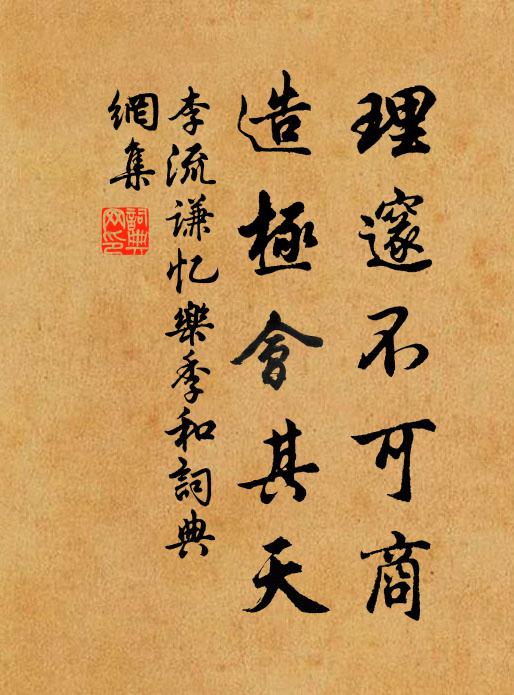 理邃不可商
造極會其天
李流谦忆樂季和詞典
網集
詞典
网印